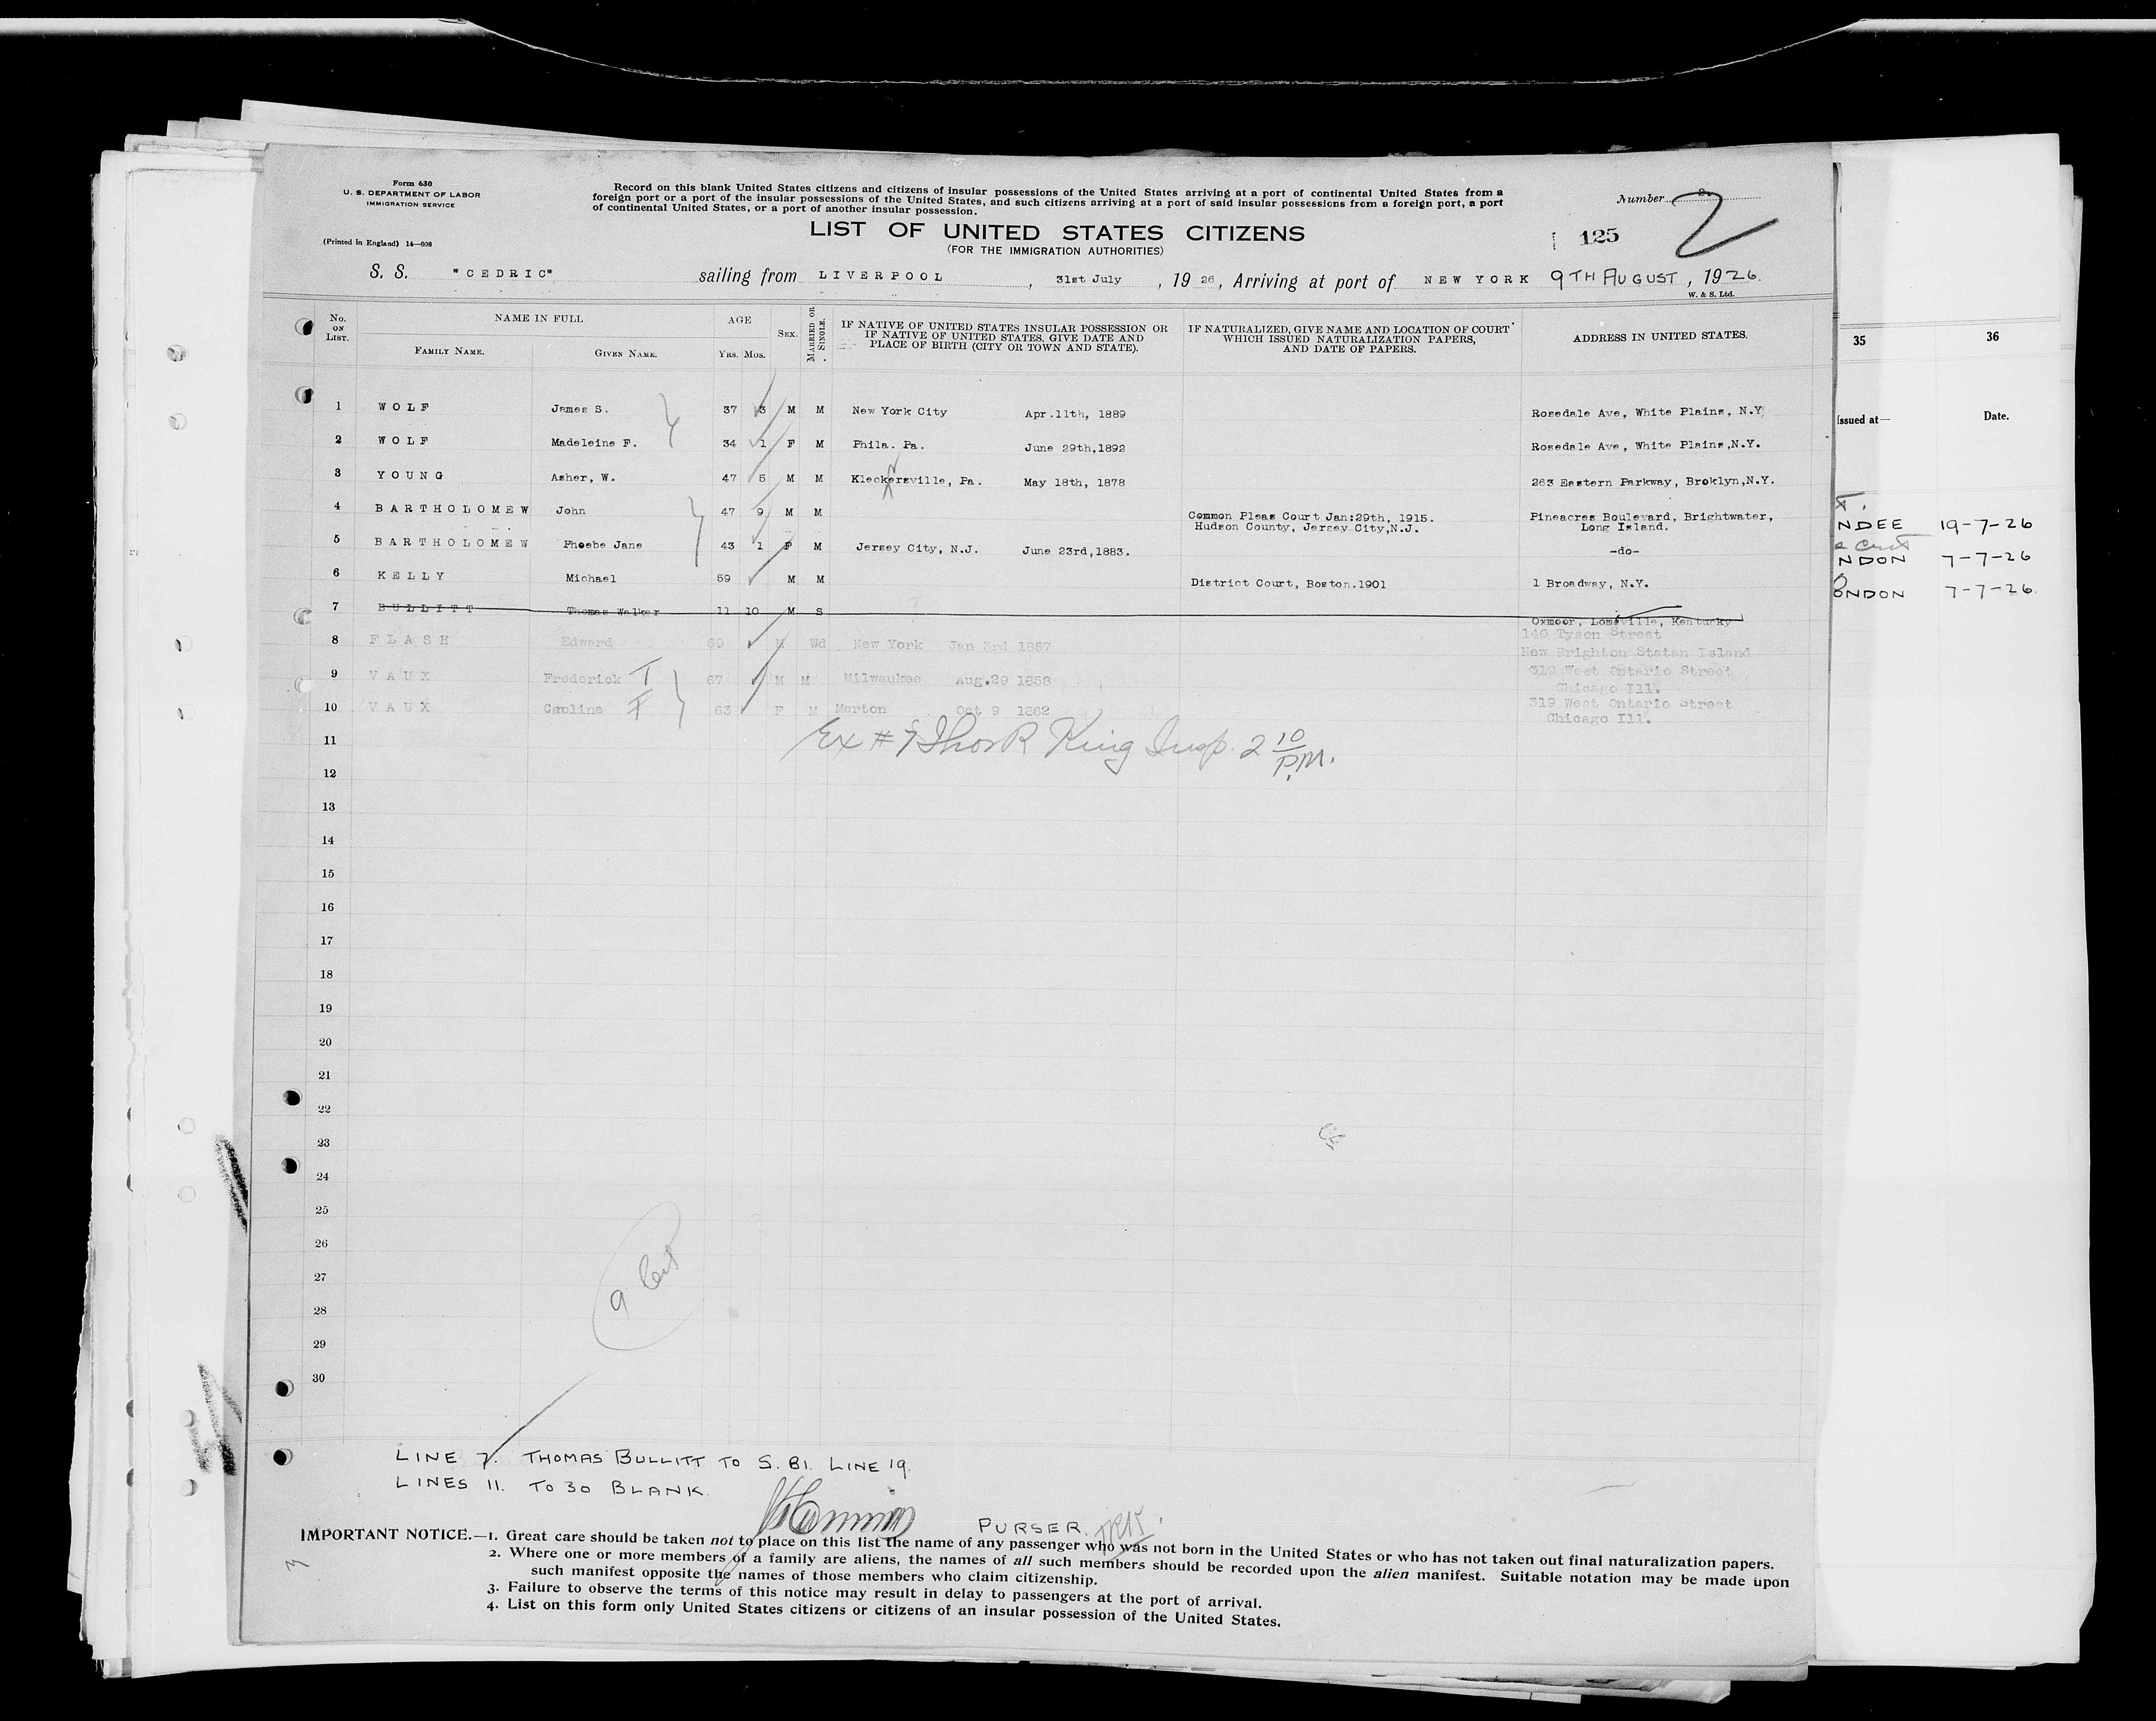 Form 630
U. S. DEPARTMENT OF LABOR
IMMIGRATION SERVICE
(Printed in England) 14—608
Record on this blank United States citizens and citizens of insular possessions of the United States arriving at a port of continental United States from a
foreign port or a port of the insular possessions of the United States, and such citizens arriving at a port of said insular possessions from a foreign port, a port
of continental United States, or a port of another insular possession.
Number 2
LIST OF UNITED STATES CITIZENS
(FOR THE IMMIGRATION AUTHORITIES)
125
S. S. "CEDRIC" sailing from LIVERPOOL, 31st July, 1926, Arriving at port of NEW YORK 9TH AUGUST, 1926.
W. & S. Ltd.
No. ON LIST. NAME IN FULL AGE SEX. MARRIED OR SINGLE. IF NATIVE OF UNITED STATES INSULAR POSSESSION OR IF NATIVE OF UNITED STATES, GIVE DATE AND PLACE OF BIRTH (CITY OR TOWN AND STATE). IF NATURALIZED, GIVE NAME AND LOCATION OF COURT WHICH ISSUED NATURALIZATION PAPERS, AND DATE OF PAPERS. ADDRESS IN UNITED STATES.
FAMILY NAME. GIVEN NAME. YRS. MOS.
35 36
issued at— Date.
1 WOLF James S. 37 3 M M New York City Apr.11th, 1889 Rosedale Ave, White Plains, N.Y
2 WOLF Madeleine F. 34 1 F M Phila. Pa. June 29th,1892 Rosedale Ave, White Plains,N.Y.
3 YOUNG Asher, W. 47 5 M M Kleckersville, Pa. May 18th, 1878 263 Eastern Parkway, Broklyn,N.Y.
4 BARTHOLOMEW John 47 9 M M Common Pleas Court Jan:29th, 1915. Pineacres Boulevard, Brightwater,
Hudson County, Jersey City,N.J. Long Island.
NDEE 19-7-26
5 BARTHOLOMEW Phoebe Jane 43 1 F M Jersey City, N.J. June 23rd,1883. -do-
NDON 7-7-26
6 KELLY Michael 59 M M District Court, Boston.1901 1 Broadway, N.Y.
ONDON 7-7-26.
7 BULLITT Thomas Walker 11 10 M S Oxmoor, Lomsville, Kentucky
8 FLASH Edward 69 M Wd New York Jan 3rd 1857 140 Tyson Street
New Brighton Staten Island
9 VAUX Frederick T 67 M M Milwaukee Aug.29 1858 319 West Ontario Street
Chicago Ill.
10 VAUX Caroline F 63 F M Merton Oct 9 1862 319 West Ontario Street
Chicago Ill.
11 Ex # 7 Thos R King Insp. 2 10 P.M.
12
13
14
15
16
17
18
19
20
21
22
23
24
25
26
27
28
29
30
LINE 7. THOMAS BULLITT TO S. 81. LINE 19.
LINES 11. TO 30 BLANK.
PURSER.
IMPORTANT NOTICE.—1. Great care should be taken not to place on this list the name of any passenger who was not born in the United States or who has not taken out final naturalization papers.
2. Where one or more members of a family are aliens, the names of all such members should be recorded upon the alien manifest. Suitable notation may be made upon
such manifest opposite the names of those members who claim citizenship.
3. Failure to observe the terms of this notice may result in delay to passengers at the port of arrival.
4. List on this form only United States citizens or citizens of an insular possession of the United States.